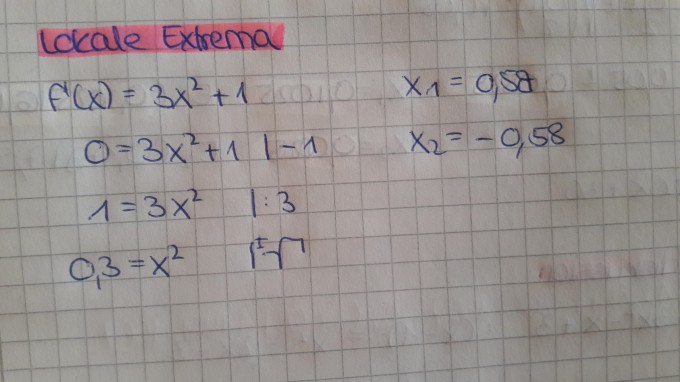 Lokale Extrema
f'(x) = 3x² + 1
0 = 3x² + 1 | - 1
1 = 3x² | : 3
0,3 = x² | ±√
x1 = 0,58
x2 = - 0,58